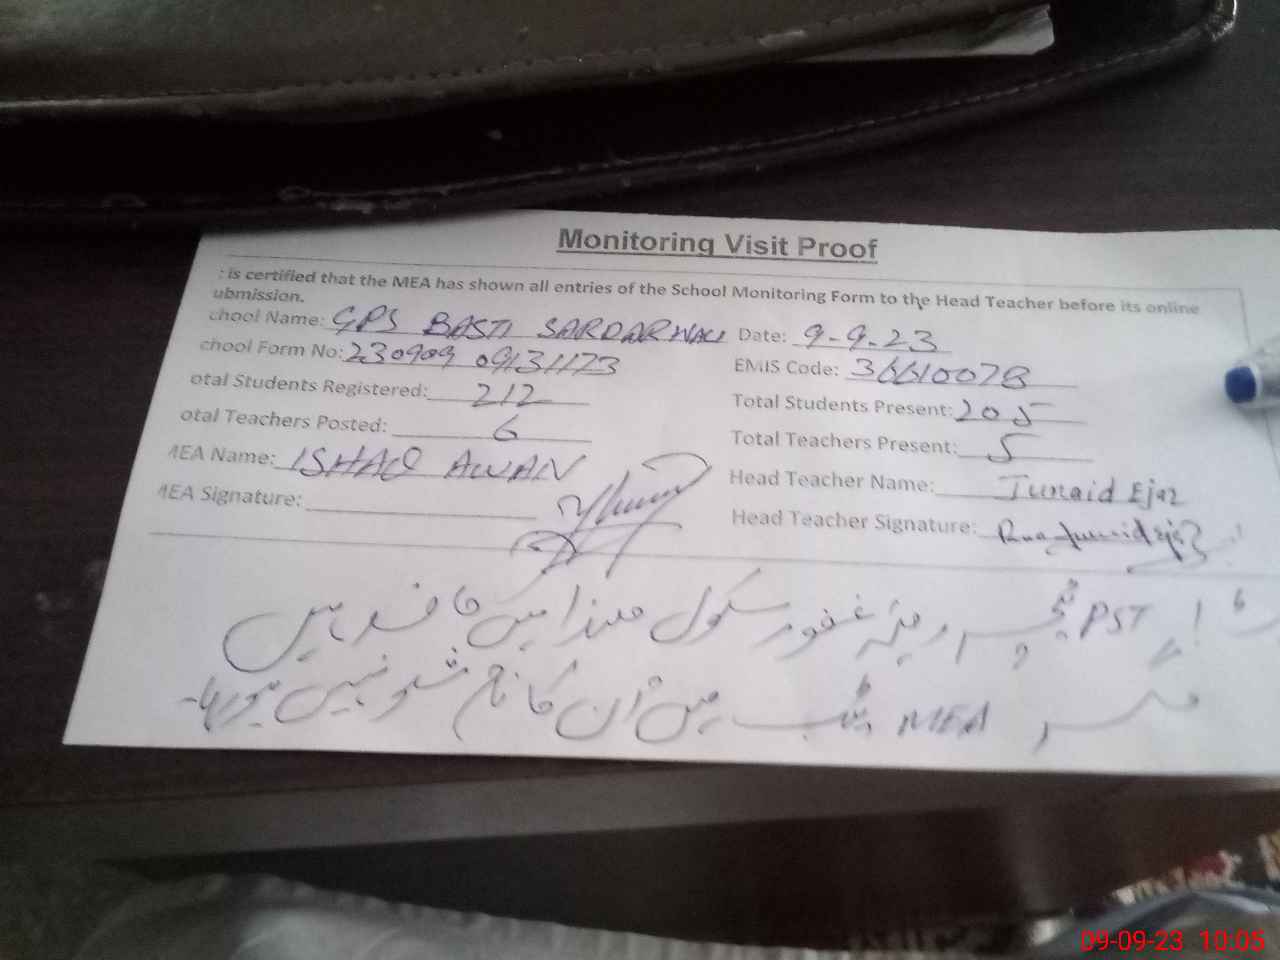 Monitoring Visit Proof
: is certified that the MEA has shown all entries of the School Monitoring Form to the Head Teacher before its online
ubmission.
chool Name: GPS BASTI SARDAR WALI Date: 9-9-23
chool Form No: 230909 09131173 EMIS Code: 36610078
otal Students Registered: 212 Total Students Present: 205
otal Teachers Posted: 6 Total Teachers Present: 5
MEA Name: ISHAQ AWAN Head Teacher Name: Junaid Ejaz
MEA Signature: Head Teacher Signature:
PST غفور سکول ھذا میں حاضر ہیں
مگر MEA ٹیب میں ان کا نام شو نہیں ہو رہا۔
09-09-23 10:05